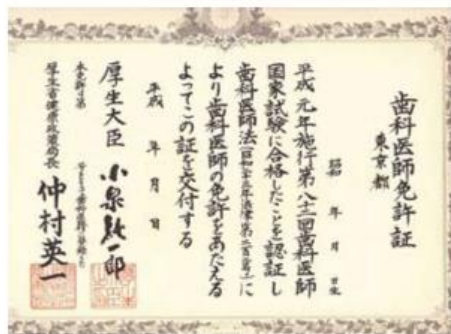 歯科医師免許証
東京都
昭和 年 月 日生
平成元年施行第八三回歯科医師
国家試験に合格したことを認証し
歯科医師法(昭和二十三年法律第二百二号)に
より歯科医師の免許をあたえる
よってこの証を交付する
平成 年 月 日
厚生大臣 小泉純一郎
厚生省健康政策局長 仲村英一